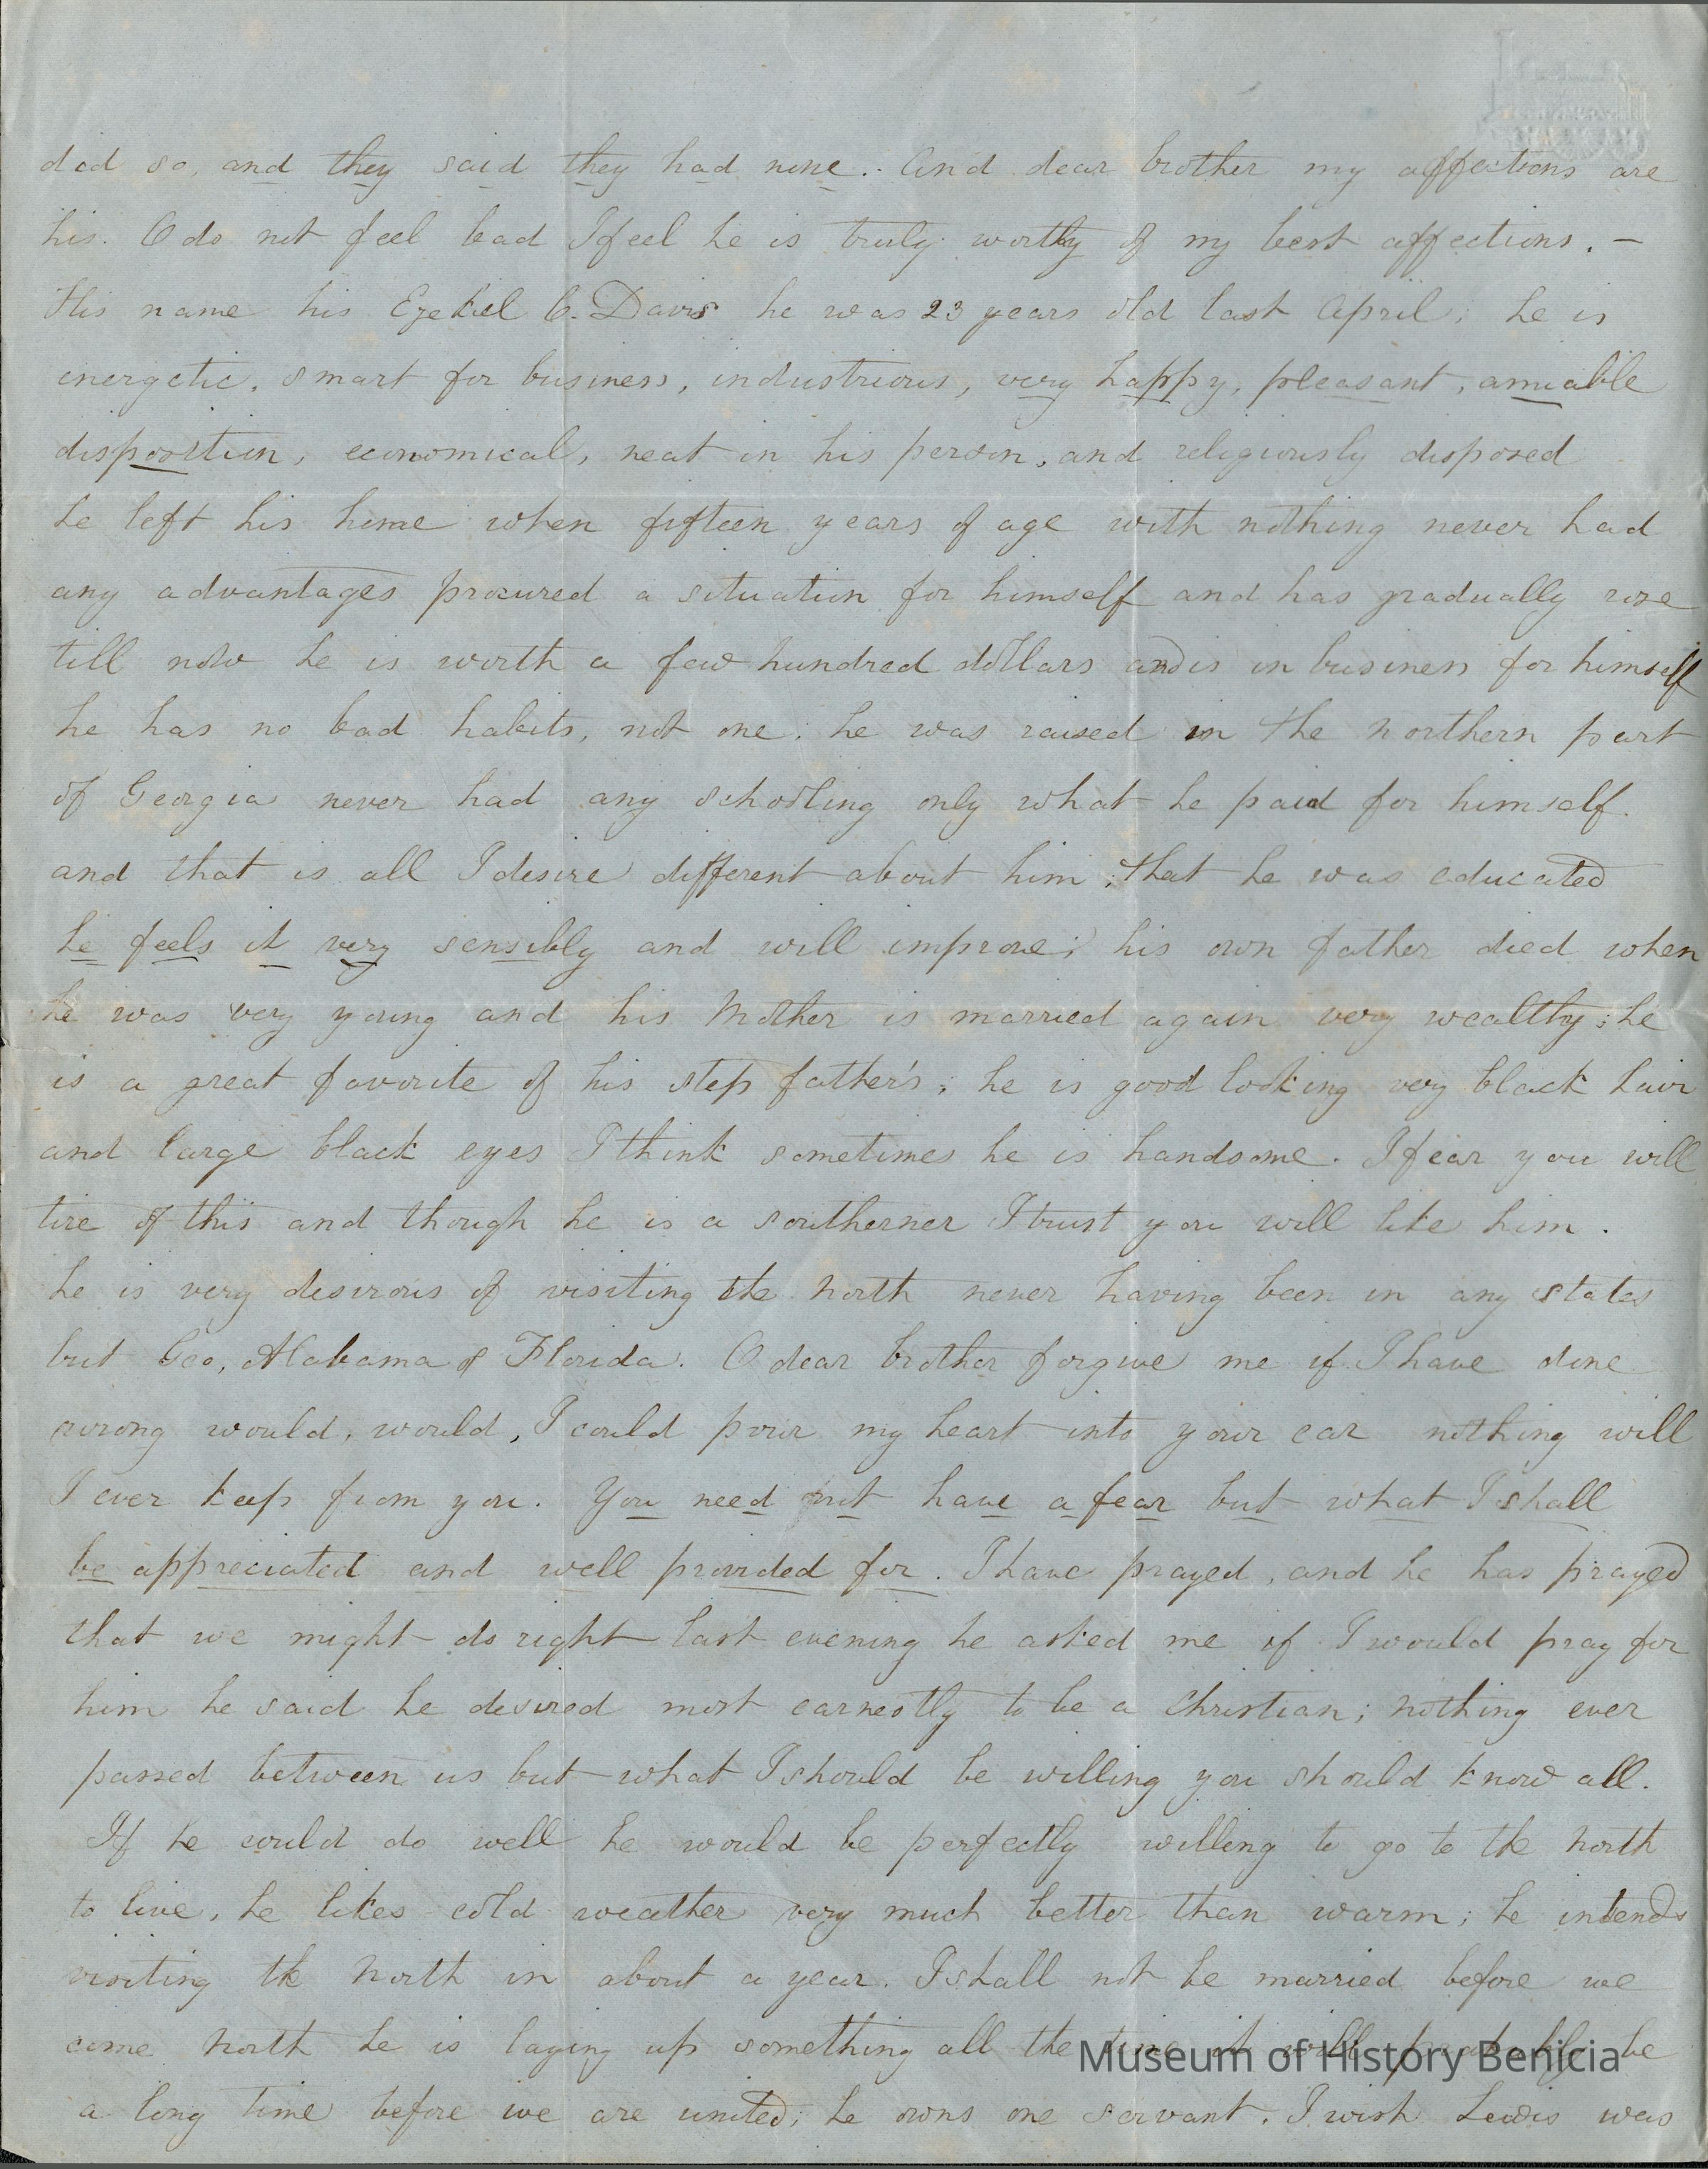 did so, and they said they had none. And dear brother my affections are
his. O do not feel bad I feel he is truly worthy of my best affections. –
His name his Ezekiel C. Davis he was 23 years old last April; he is
energetic, smart for business, industrious, very happy, pleasant, amiable
disposition, economical, neat in his person, and religiously disposed
he left his home when fifteen years of age with nothing never had
any advantages procured a situation for himself and has gradually rose
till now he is worth a few hundred dollars and is in business for himself
he has no bad habits, not one; he was raised in the northern part
of Georgia never had any schooling only what he paid for himself.
and that is all I desire different about him; that he was educated
he feels it very sensibly and will improve; his own father died when
he was very young and his Mother is married again very wealthy; he
is a great favorite of his step father's; he is good looking very black hair
and large black eyes I think sometimes he is handsome. I fear you will
tire of this and though he is a southerner I trust you will like him.
he is very desirous of visiting the North never having been in any states
but Geo, Alabama & Florida. O dear brother forgive me if I have done
wrong would, would, I could pour my heart into your ear nothing will
I ever keep from you. You need not have a fear but what I shall
be appreciated and well provided for. I have prayed, and he has prayed
that we might do right last evening he asked me if I would pray for
him he said he desired most earnestly to be a Christian; nothing ever
passed between us but what I should be willing you should know all.
If he could do well he would be perfectly willing to go to the North
to live, he likes cold weather very much better than warm; he intends
visiting the North in about a year. I shall not be married before we
come North he is laying up something all the time it will probably be
a long time before we are united; he owns one servant. I wish Lewis was
Museum of History Benicia